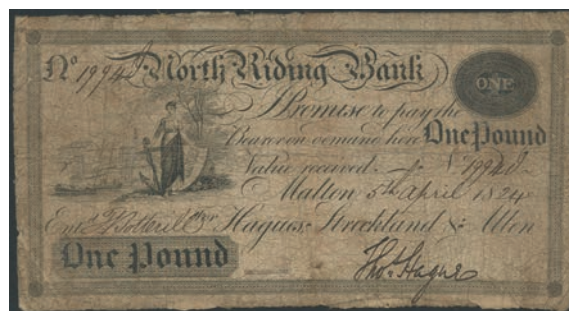 No 19940 North Riding Bank
ONE
I Promise to pay the
Bearer on demand here One Pound
Value received. 19940.
Malton 5th April 1824
Entd Botterill For Hagues Strickland & Allen
One Pound
Thos Hague